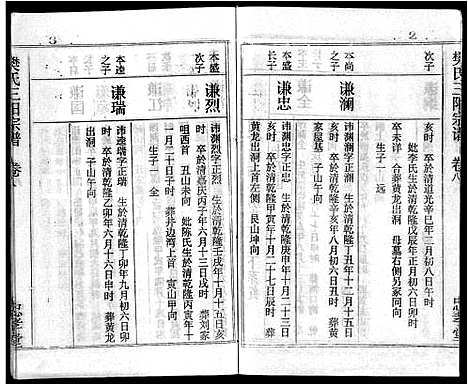 2
樊氏三陽宗譜 卷八
亥時 卒於清道光辛巳年二月初八日午時
妣李氏生於清乾隆戊辰年正月初六日
卒未洋 合葬黄龙出洞 母墓右侧另冢同向
生子一 远
本尚
次子
谦澜
讳澜渊字正澜 生於清乾隆丁丑年十二月十五日
亥时 卒於清乾隆 年八月初六日丑时 葬
家屋基 子山午向
本盛
长子
谦忠
讳渊忠字正忠 生於清乾隆庚申年十月二十三日
辰时 卒於清乾隆甲寅年十一月二十七日辰时 葬
黄龙出洞上首左侧 艮山坤向
3
本盛
次子
谦烈
讳渊烈字正烈 生於清乾隆壬戌年十月十五日亥
时 卒於清嘉庆丙子年六月十三日戌时 葬刘家
咀西首 丑山未向 妣陈氏生於清乾隆丙寅年十
一月二十日子时 葬李边湾上首 寅山甲向
生子一 金
本逵
之子
谦瑞
讳逢瑞字正瑞 生於清乾隆丁卯年九月初六日卯
时 卒於清乾隆乙卯年六月十六日申时 葬黄龙
出洞 子山午向
樊氏三陽宗譜 卷八
忠孝堂